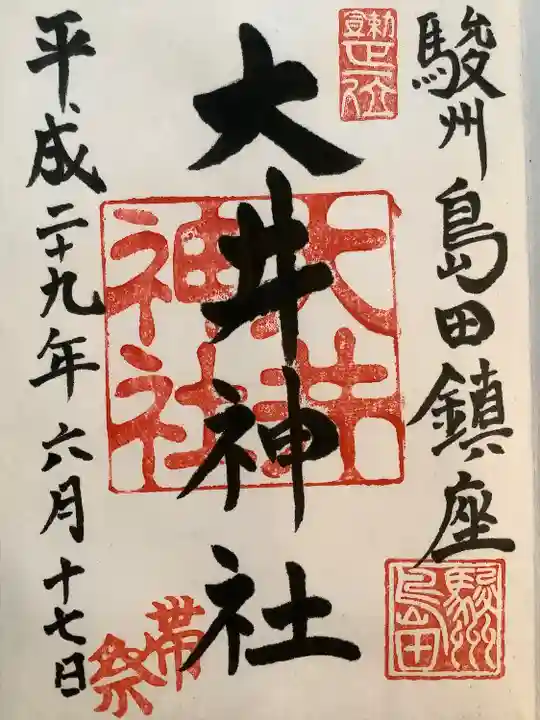 駿州島田鎮座
勅宣
正一位
大井神社
大井
神社
駿州
島田
帯
祭
平成二十九年六月十七日